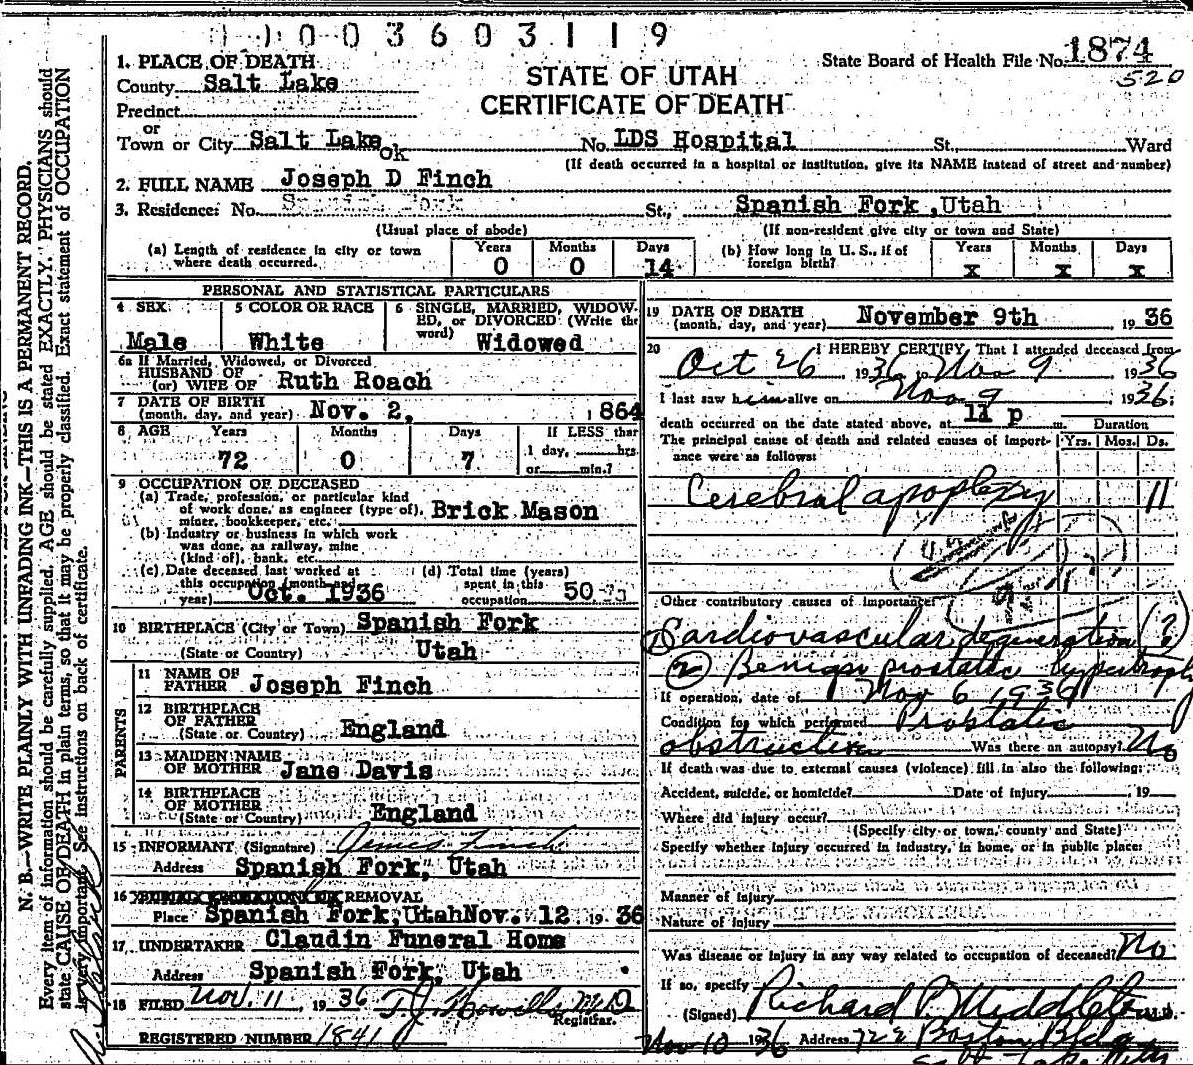 0003603119
1. PLACE OF DEATH
State Board of Health File No. 1874
520
County Salt Lake
STATE OF UTAH
CERTIFICATE OF DEATH
Precinct
or
Town or City Salt Lake No. LDS Hospital St., Ward
OK
(If death occurred in a hospital or institution, give its NAME instead of street and number)
2. FULL NAME Joseph D Finch
3. Residence: No. Spanish Fork St., Spanish Fork, Utah
(Usual place of abode) (If non-resident give city or town and State)
(a) Length of residence in city or town where death occurred. Years 0 Months 0 Days 14
(b) How long in U. S., if of foreign birth? Years x Months x Days x
PERSONAL AND STATISTICAL PARTICULARS
4 SEX Male
5 COLOR OR RACE White
6 SINGLE, MARRIED, WIDOWED, or DIVORCED (Write the word) Widowed
6a If Married, Widowed, or Divorced
HUSBAND OF
(or) WIFE OF Ruth Roach
7 DATE OF BIRTH
(month, day, and year) Nov. 2, 1864
8 AGE Years 72 Months 0 Days 7
If LESS than
1 day, hrs.
or min.?
9 OCCUPATION OF DECEASED
(a) Trade, profession, or particular kind
of work done, as engineer (type of), Brick Mason
miner, bookkeeper, etc.
(b) Industry or business in which work
was done, as railway, mine
(kind of), bank, etc.
(c) Date deceased last worked at
this occupation (month and
year) Oct. 1936
(d) Total time (years)
spent in this
occupation 50
10 BIRTHPLACE (City or Town) Spanish Fork
(State or Country) Utah
PARENTS
11 NAME OF
FATHER Joseph Finch
12 BIRTHPLACE
OF FATHER
(State or Country) England
13 MAIDEN NAME
OF MOTHER Jane Davis
14 BIRTHPLACE
OF MOTHER
(State or Country) England
15 INFORMANT (Signature) James Finch
Address Spanish Fork, Utah
16 REMOVAL
Place Spanish Fork, Utah Nov. 12 1936
17. UNDERTAKER Claudin Funeral Home
Address Spanish Fork, Utah
18 FILED Nov. 11, 1936 T. J. Howells M.D
Registrar.
REGISTERED NUMBER 1841
19 DATE OF DEATH
(month, day, and year) November 9th 1936
20 I HEREBY CERTIFY, That I attended deceased from
Oct 26, 1936 to Nov 9 1936
I last saw him alive on Nov 9, 1936;
death occurred on the date stated above, at 11 p m. Duration
The principal cause of death and related causes of importance were as follows: Yrs. Mos. Ds.
Cerebral apoplexy 11
Other contributory causes of importance:
1 Cardiovascular degeneration (?)
2 Benign prostatic hypertrophy
If operation, date of Nov 6 1936
Condition for which performed Prostatic
obstruction Was there an autopsy? No
If death was due to external causes (violence) fill in also the following:
Accident, suicide, or homicide? Date of injury 19
Where did injury occur?
(Specify city or town, county and State)
Specify whether injury occurred in industry, in home, or in public place:
Manner of injury
Nature of injury
Was disease or injury in any way related to occupation of deceased? No
If so, specify
(Signed) Richard P. Middleton M.D.
Nov 10 1936 Address 722 Boston Bldg
Salt Lake City
N. B.—WRITE PLAINLY WITH UNFADING INK—THIS IS A PERMANENT RECORD.
Every item of information should be carefully supplied. AGE should be stated EXACTLY. PHYSICIANS should
state CAUSE OF DEATH in plain terms, so that it may be properly classified. Exact statement of OCCUPATION
is very important. See instructions on back of certificate.